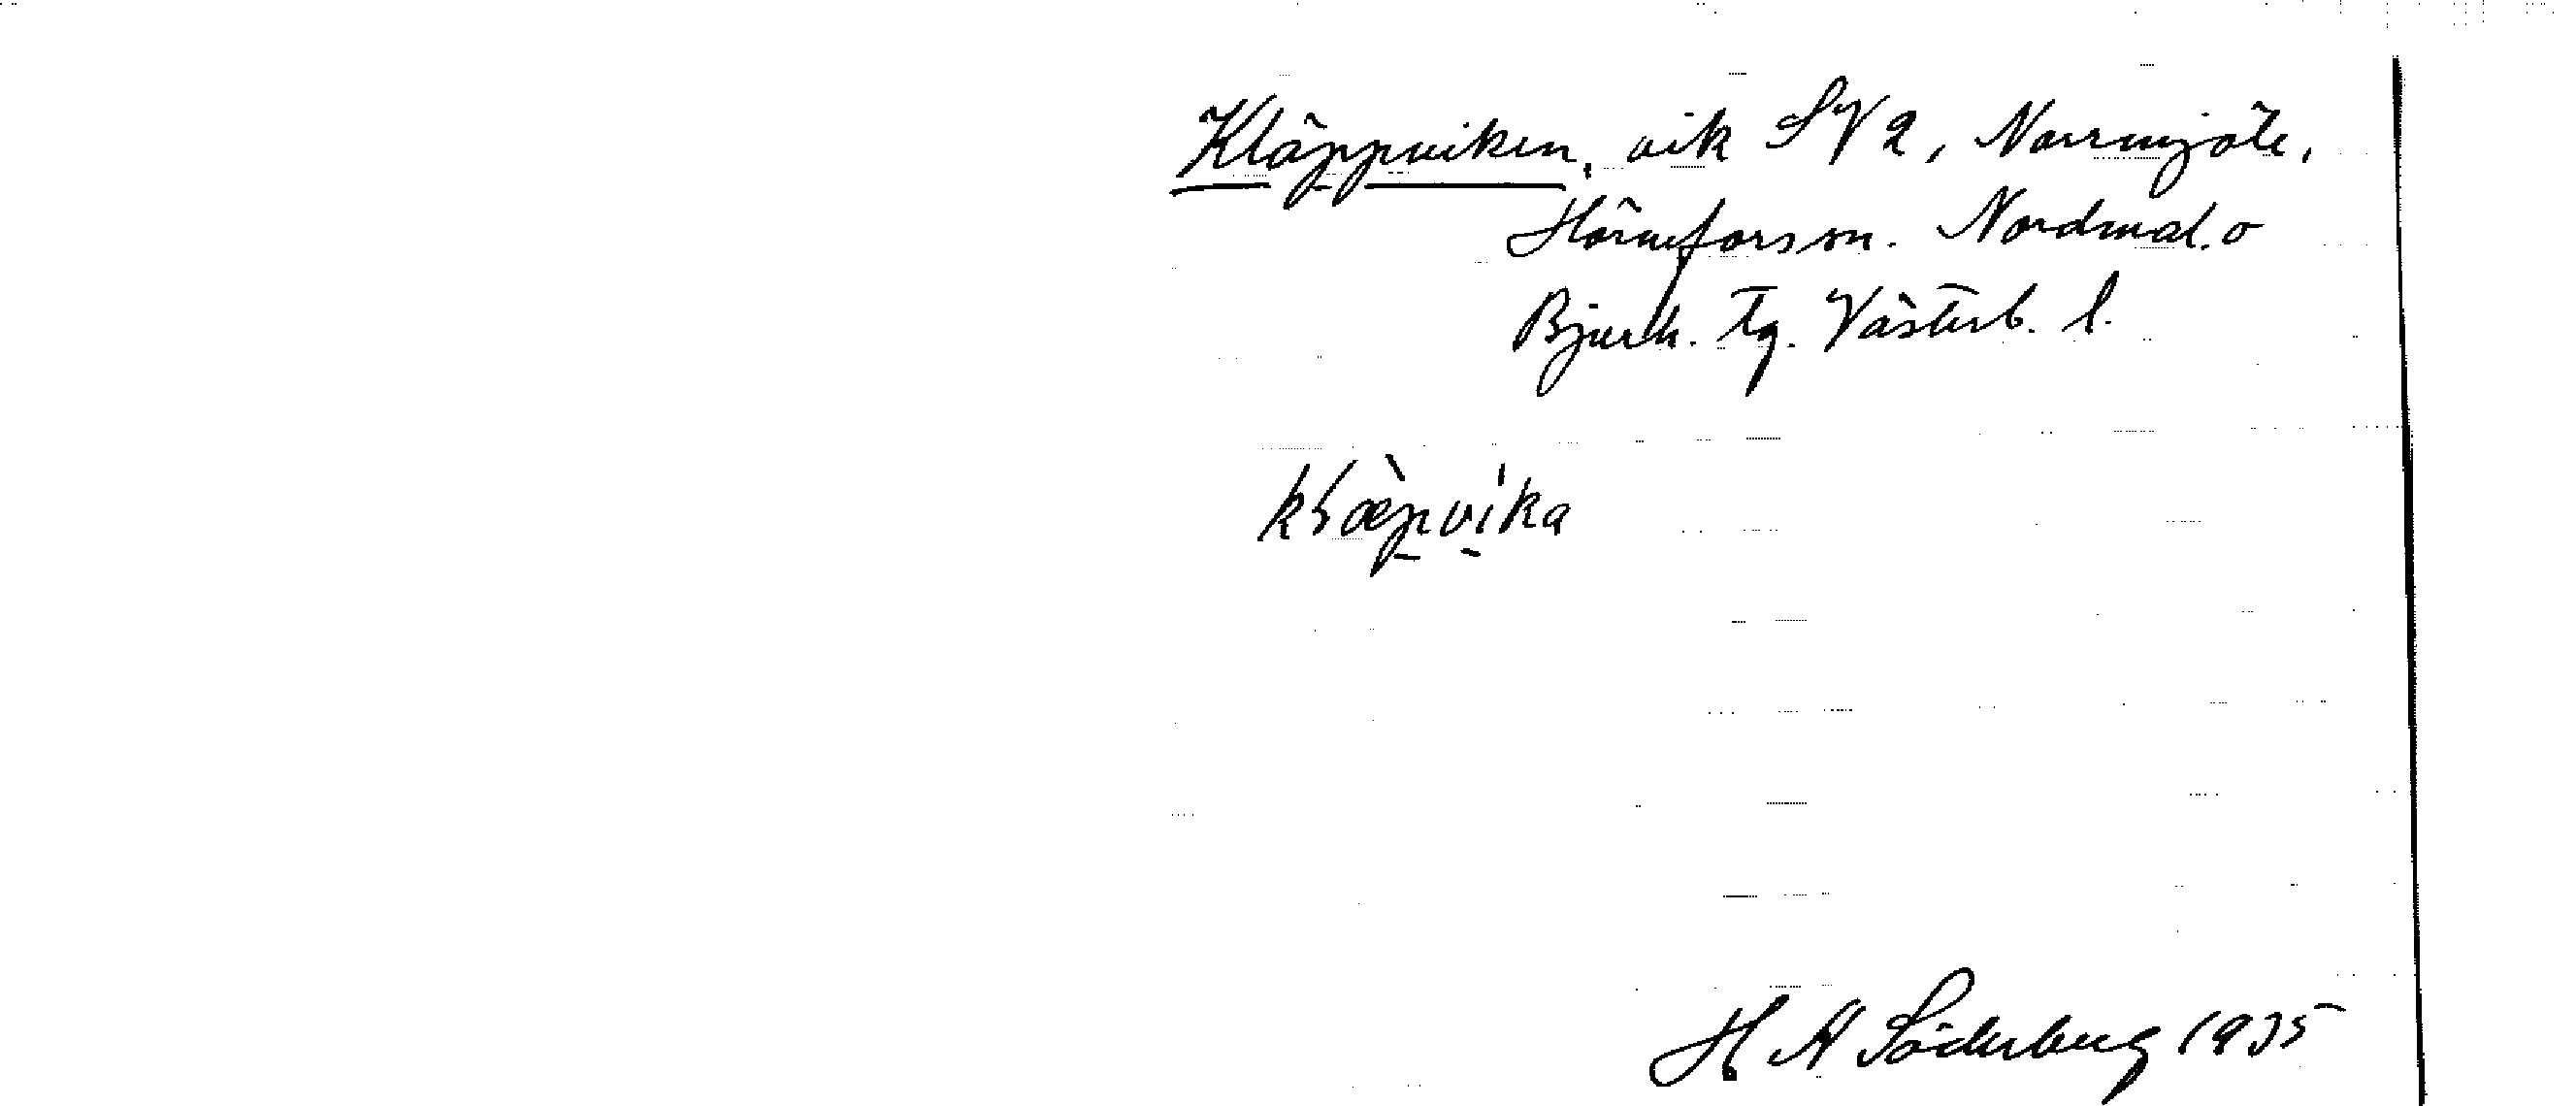 Kläppviken, vik SV 2, Norrmjöle,
Hörnefors sn. Nordmal. o
Bjurh. tg. Västerb. l.
kɽæ̀pvíka
H A Söderberg 1935